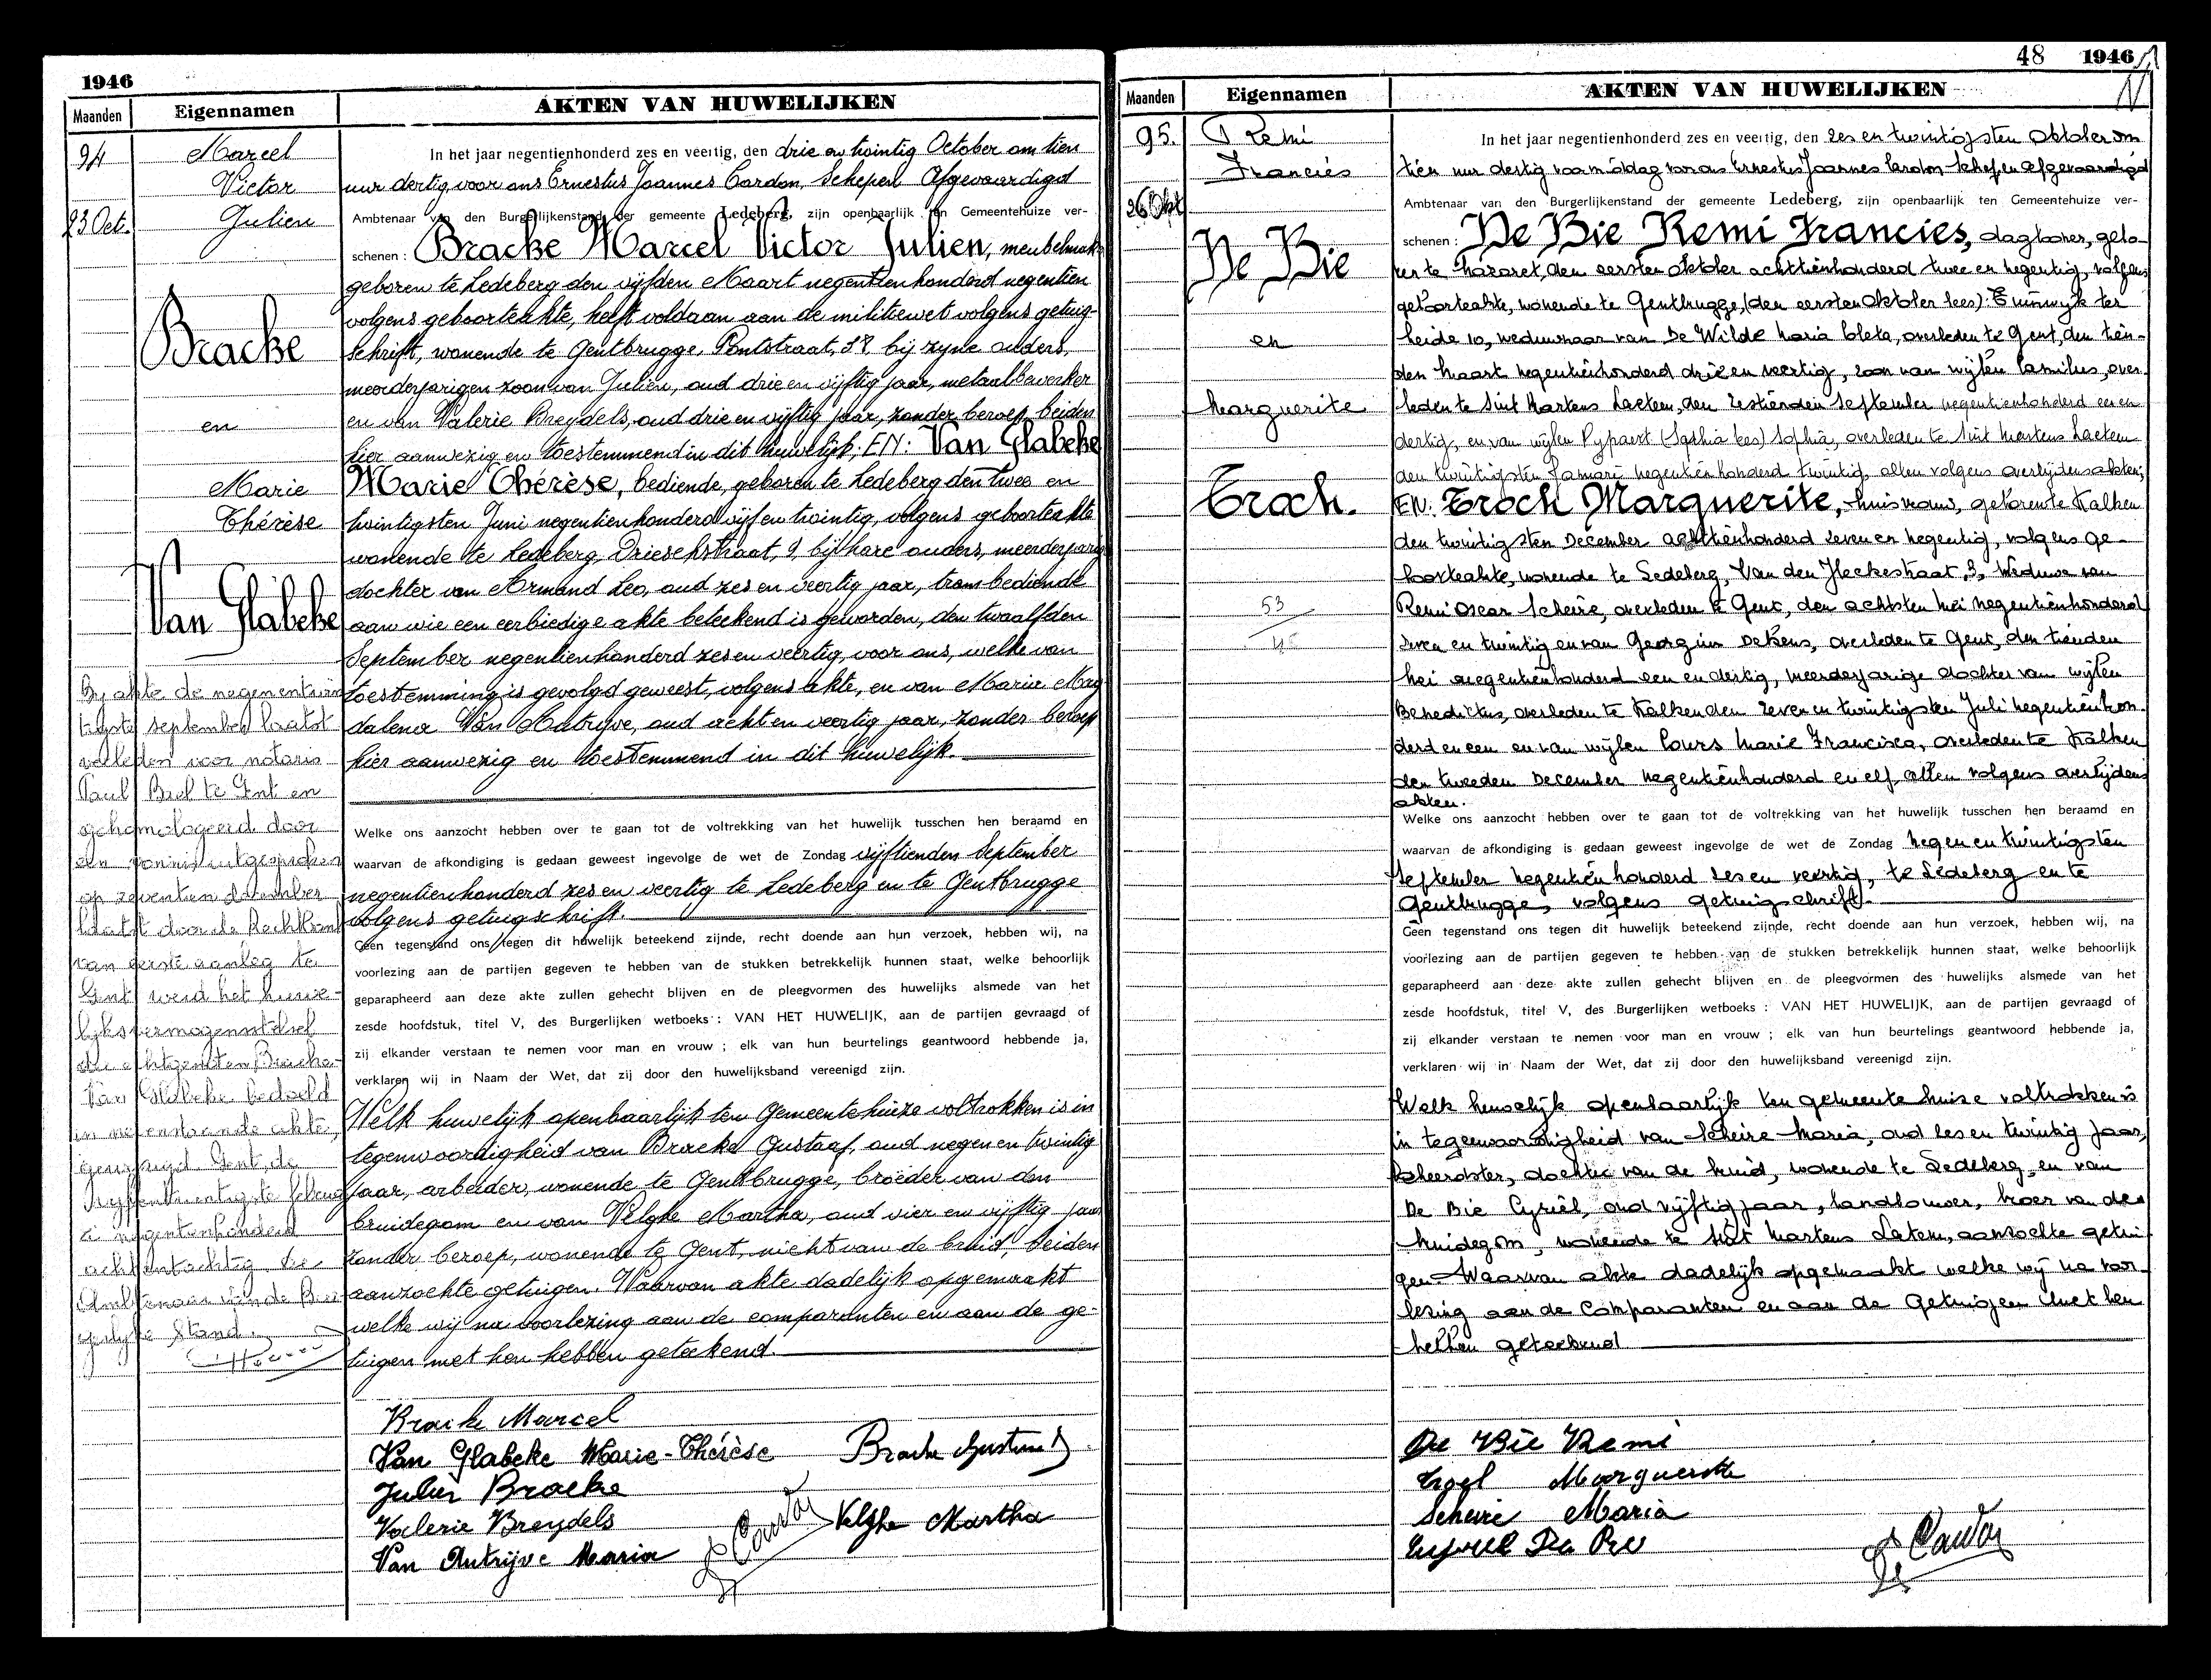 1946
Maanden
Eigennamen
AKTEN VAN HUWELIJKEN
94
23 Oct.
Marcel
Victor
Julien
Bracke
en
Marie
Thérèse
Van Glabeke
By akte de negenentwin
tigste september laatst
verleden voor notaris
Paul te Gent en
gehomologeerd door
een vonnis uitgesproken
op zeventien december
laatst door de Rechtbank
van eerste aanleg te
Gent werd het huwe-
lijksvermogensstelsel
der echtgenoten Bracke-
Van Glabeke bedoeld
in nevenstaande akte,
gewijzigd. Gent, de
negentienhonderd
achtentachtig. De
Ambtenaar van de Bur
gerlijke Stand.
In het jaar negentienhonderd zes en veertig, den drie en twintig October om tien
uur dertig voor ons Ernestus Joannes Cardon, Schepen Afgevaardigd
Ambtenaar van den Burgerlijkenstand der gemeente Ledeberg, zijn openbaarlijk ten Gemeentehuize ver-
schenen : Bracke Marcel Victor Julien, meubelmak
geboren te Ledeberg den vijfden Maart negentienhonderd negentien
volgens geboorteakte, heeft voldaan aan de militiewet volgens getuig-
schrift, wonende te Gentbrugge, Pontstraat, 58 bij zyne ouders,
meerderjarigen zoon van Julien, oud drie en vijftig jaar, metaalbewerker
en van Valerie Breydels, oud drie en vijftig jaar, zonder beroep, beiden
hier aanwezig en toestemmend in dit huwelijk; EN: Van Glabeke
Marie Thérèse, bediende, geboren te Ledeberg den twee en
twintigsten Juni negentienhonderd vijf en twintig, volgens geboorteakte
wonende te Ledeberg, Drieschstraat, 9, bij hare ouders, meerderjarig
dochter van Armand Leo, oud zes en veertig jaar, trambediende
aan wie een eerbiedige akte beteekend is geworden, den twaalfden
September negentienhonderd zes en veertig, voor ons, welke van
toestemming is gevolgd geweest, volgens akte, en van Maria Mag
dalena Van Autryve, oud acht en veertig jaar, zonder beroep
hier aanwezig en toestemmend in dit huwelijk.
Welke ons aanzocht hebben over te gaan tot de voltrekking van het huwelijk tusschen hen beraamd en
waarvan de afkondiging is gedaan geweest ingevolge de wet de Zondag vijftienden September
negentienhonderd zes en veertig te Ledeberg en te Gentbrugge
volgens getuigschrift.
Geen tegenstand ons tegen dit huwelijk beteekend zijnde, recht doende aan hun verzoek, hebben wij, na
voorlezing aan de partijen gegeven te hebben van de stukken betrekkelijk hunnen staat, welke behoorlijk
geparapheerd aan deze akte zullen gehecht blijven en de pleegvormen des huwelijks alsmede van het
zesde hoofdstuk, titel V, des Burgerlijken wetboeks : VAN HET HUWELIJK, aan de partijen gevraagd of
zij elkander verstaan te nemen voor man en vrouw ; elk van hun beurtelings geantwoord hebbende ja,
verklaren wij in Naam der Wet, dat zij door den huwelijksband vereenigd zijn.
Welk huwelijk openbaarlijk ten Gemeentehuize voltrokken is in
tegenwoordigheid van Bracke Gustaaf, oud negen en twintig
jaar, arbeider, wonende te Gentbrugge, broeder van den
bruidegom en van Velghe Martha, oud vier en vijftig jaar
zonder beroep, wonende te Gent, nicht van de bruid, beiden
aanzochte getuigen. Waarvan akte dadelijk opgemaakt
welke wij na voorlezing aan de comparanten en aan de ge-
tuigen met hen hebben geteekend.
Bracke Marcel
Van Glabeke Marie-Thérèse
Bracke Gustaaf
Julien Bracke
Valerie Breydels
Velghe Martha
Van Autrijve Maria
Cardon
48 1946
Maanden
Eigennamen
AKTEN VAN HUWELIJKEN
95.
26 Okt
Remi
Francies
De Bie
en
Marguerite
Troch.
53
45
In het jaar negentienhonderd zes en veertig, den zes en twintigsten Oktober om
tien uur dertig voormiddag voor ons Ernestus Joannes Cardon Schepen Afgevaardigd
Ambtenaar van den Burgerlijkenstand der gemeente Ledeberg, zijn openbaarlijk ten Gemeentehuize ver-
schenen : De Bie Remi Francies, dagloner, gebo
ren te Nazaret, den eersten Oktober achttienhonderd twee en negentig, volgens
geboorteakte, wonende te Gentbrugge, (den eersten Oktober lees): ter
heide 10, weduwnaar van De Wilde Maria Coleta, overleden te Gent, den tien-
den Maart negentienhonderd drie en veertig, zoon van wijlen Camilus, over
leden te Sint Martens Laetem, den zestienden September negentienhonderd een en
dertig, en van wijlen Pypaert (Sophia lees) Sophia, overleden te Sint Martens Laetem
den twintigsten Januari negentienhonderd twintig, allen volgens overlijdensakten;
EN: Troch Marguerite, huisvrouw, geboren te Kalken
den twintigsten December achttienhonderd zeven en negentig, volgens ge-
boorteakte, wonende te Ledeberg, Van den Heckestraat, 3, Weduwe van
Remi Oscar Scheire, overleden te Gent, den achtsten Mei negentienhonderd
zeven en twintig en van Georgius overleden te Gent, den tienden
Mei negentienhonderd een en dertig, meerderjarige dochter van wijlen
Benedictus, overleden te Kalken den zeven en twintigsten Juli negentienhon-
derd en een en van wijlen Cours Marie Francisca, overleden te Kalken
den tweeden December negentienhonderd en elf, allen volgens overlijdens
akten.
Welke ons aanzocht hebben over te gaan tot de voltrekking van het huwelijk tusschen hen beraamd en
waarvan de afkondiging is gedaan geweest ingevolge de wet de Zondag negen en twintigsten
September negentienhonderd zes en veertig, te Ledeberg en te
Gentbrugge, volgens getuigschrift.
Geen tegenstand ons tegen dit huwelijk beteekend zijnde, recht doende aan hun verzoek, hebben wij, na
voorlezing aan de partijen gegeven te hebben van de stukken betrekkelijk hunnen staat, welke behoorlijk
geparapheerd aan deze akte zullen gehecht blijven en de pleegvormen des huwelijks alsmede van het
zesde hoofdstuk, titel V, des Burgerlijken wetboeks : VAN HET HUWELIJK, aan de partijen gevraagd of
zij elkander verstaan te nemen voor man en vrouw ; elk van hun beurtelings geantwoord hebbende ja,
verklaren wij in Naam der Wet, dat zij door den huwelijksband vereenigd zijn.
Welk huwelijk openbaarlijk ten gemeentehuise voltrokken is
in tegenwoordigheid van Scheire Maria, oud zes en twintig jaar,
dochter van de bruid, wonende te Ledeberg, en van
De Bie Cyriel, oud vijftig jaar, landbouwer, broer van den
bruidegom, wonende te Sint Martens Latem, aanzochte getui
gen. Waarvan akte dadelijk opgemaakt welke wij na voor
lezing aan de comparanten en aan de getuigen met hen
hebben geteekend
De Bie Remi
Marguerite
Scheire Maria
Cardon